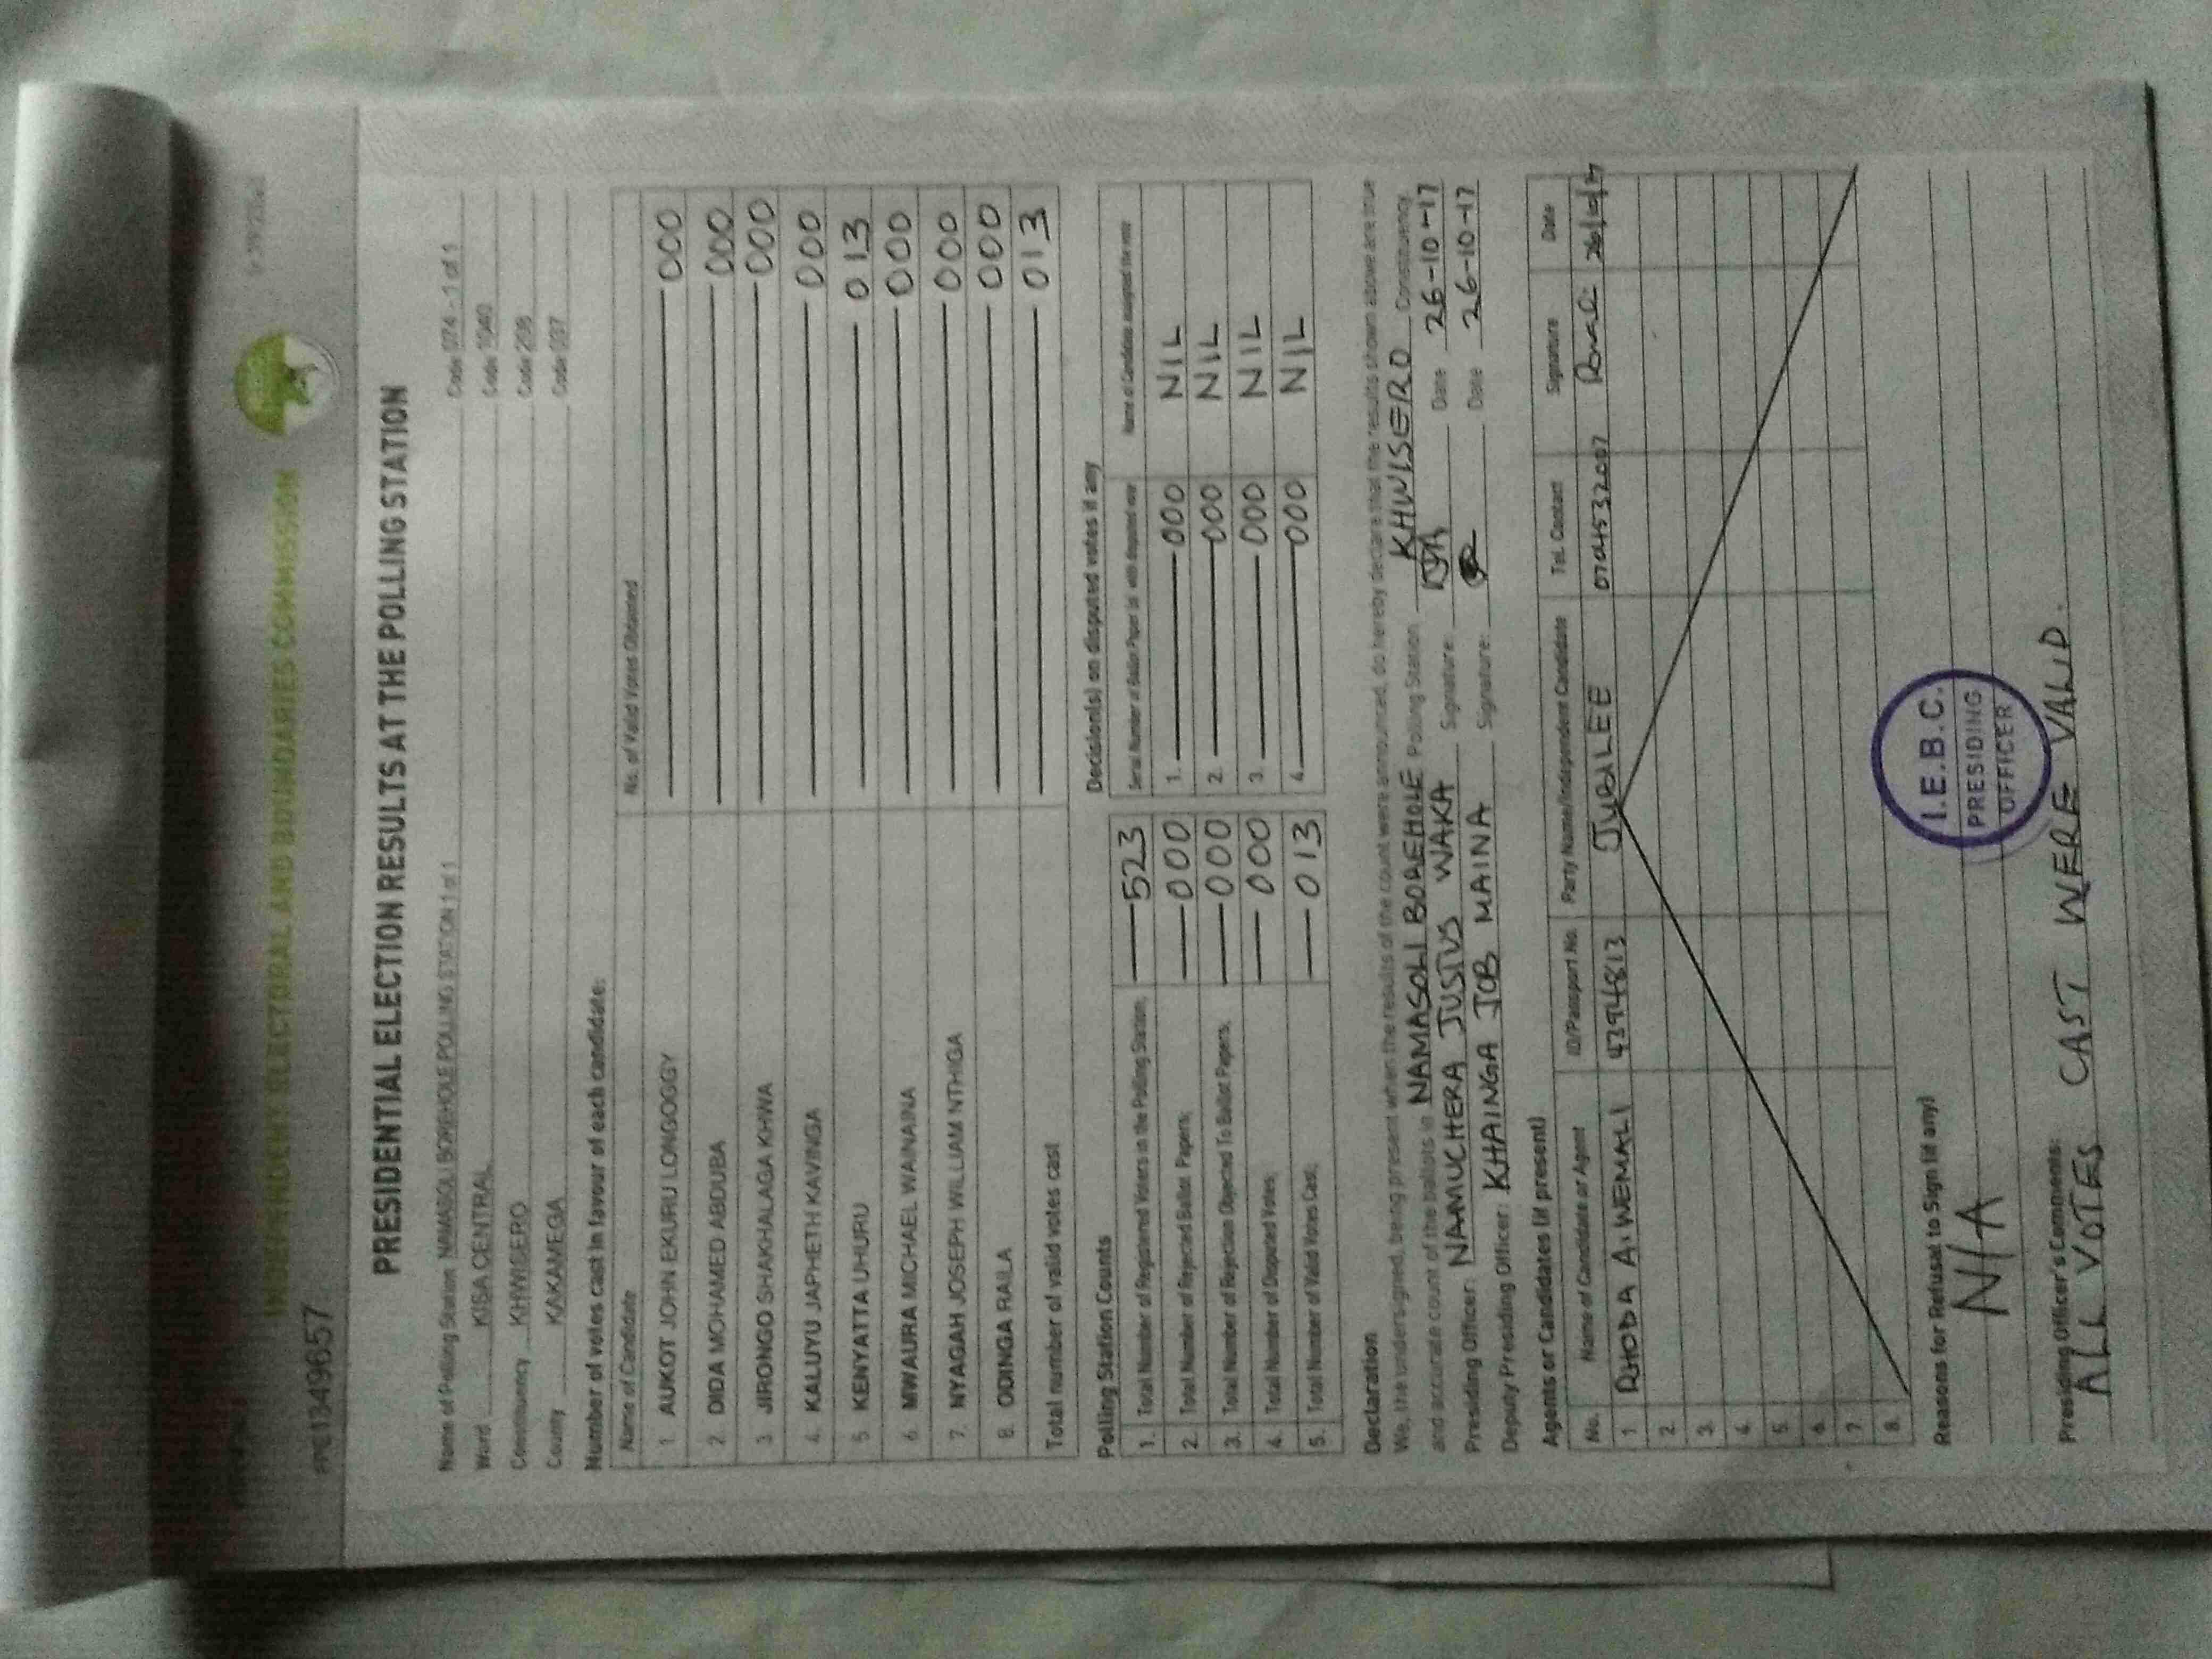 INDEPENDENT ELECTORAL AND BOUNDARIES COMMISSION
PRE1349657
PRESIDENTIAL ELECTION RESULTS AT THE POLLING STATION
Name of Polling Station NAMASOLI BOREHOLE POLLING STATION 1 of 1 Code 074 - 1 of 1
Ward KISA CENTRAL Code 1040
Constituency KHWISERO Code 208
County KAKAMEGA Code 037
Number of votes cast in favour of each candidate:
Name of Candidate No. of Valid Votes Obtained
1. AUKOT JOHN EKURU LONGOGGY 000
2. DIDA MOHAMED ABDUBA 000
3. JIRONGO SHAKHALAGA KHWA 000
4. KALUYU JAPHETH KAVINGA 000
5. KENYATTA UHURU 013
6. MWAURA MICHAEL WAINAINA 000
7. NYAGAH JOSEPH WILLIAM NTHIGA 000
8. ODINGA RAILA 000
Total number of valid votes cast 013
Polling Station Counts
1. Total Number of Registered Voters in the Polling Station; 523
2. Total Number of Rejected Ballot Papers; 000
3. Total Number of Rejection Objected To Ballot Papers; 000
4. Total Number of Disputed Votes; 000
5. Total Number of Valid Votes Cast; 013
Decision(s) on disputed votes if any
Serial Number of Ballot Paper (s) with disputed vote Name of Candidate assigned the vote
1. 000 NIL
2. 000 NIL
3. 000 NIL
4. 000 NIL
Declaration
We, the undersigned, being present when the results of the count were announced, do hereby declare that the results shown above are true
and accurate count of the ballots in NAMASOLI BOREHOLE Polling Station KHWISERO Constituency
Presiding Officer: NAMUCHERA JUSTUS WAKA Signature: Date 26-10-17
Deputy Presiding Officer: KHAINGA JOB MAINA Signature: Date 26-10-17
Agents or Candidates (if present)
No. Name of Candidate or Agent ID/Passport No. Party Name/Independent Candidate Tel. Contact Signature Date
1 RHODA A. WEMALI JUBILEE
2.
3.
4.
5.
6.
7.
8.
Reasons for Refusal to Sign (if any)
N/A
I.E.B.C.
PRESIDING
OFFICER
Presiding Officer's Comments:
ALL VOTES CAST WERE VALID.